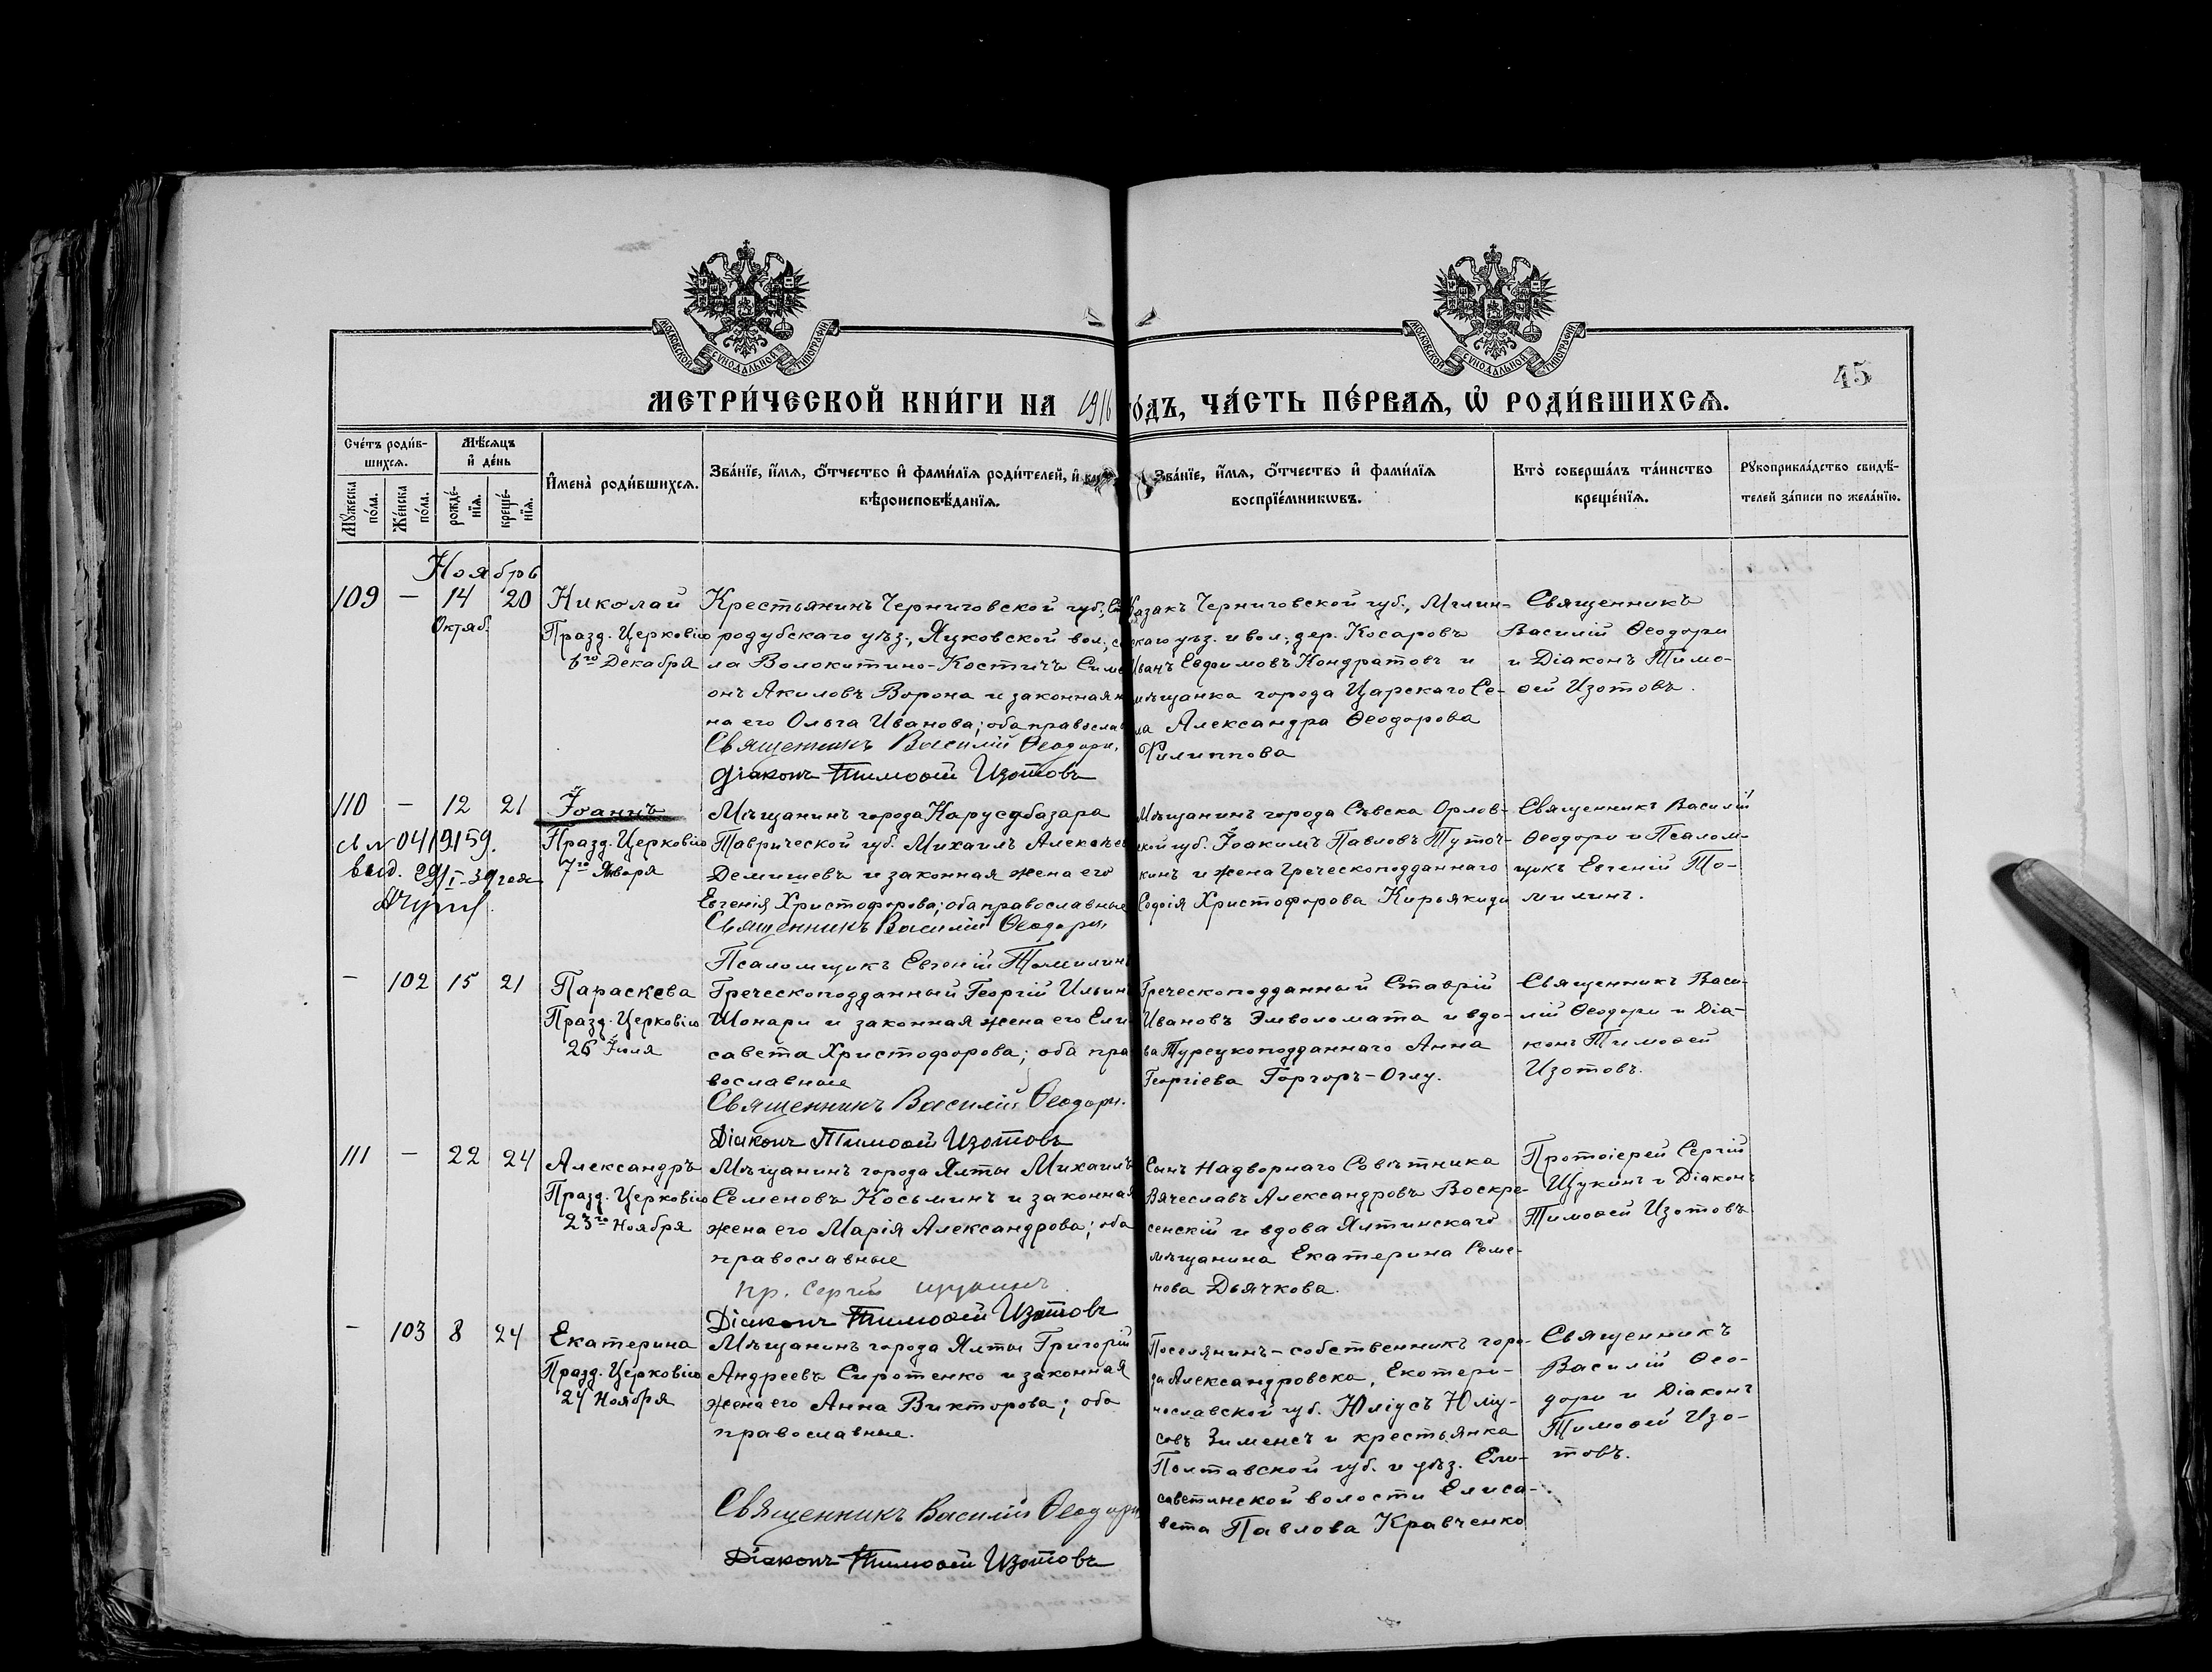 МОСКОВСКОЙ СѴНОДАЛЬНОЙ ТИПОГРАФІИ
МОСКОВСКОЙ СѴНОДАЛЬНОЙ ТИПОГРАФІИ
45
МЕТРИ́ЧЕСКОЙ КНИ́ГИ НА 1916 ГО́ДЪ, ЧА́СТЬ ПЕ́РВАЯ, Ѡ҆ РОДИ́ВШИХСЯ.
Сче́тъ роди́в-
шихся.
Мѣ́сяцъ
и҆ де́нь
Мꙋ́жеска по́ла.
Же́нска по́ла.
рожде́-
нїя.
креще́-
нїя.
И҆мена̀ роди́вшихся.
Зва́нїе, и҆́мя, о҆́тчество и҆ фами́лїя роди́телей, и҆
вѣроисповѣ́данїя.
Зва́нїе, и҆́мя, о҆́тчество и҆ фами́лїя
воспрїе́мникѡвъ.
Кто̀ соверша́лъ та́инство
креще́нїя.
Рꙋкоприкла́дство свидѣ́-
телей за́писи по жела́нїю.
Ноябрь
109 — 14 20
Октяб.
Николай
Празд. Церковію
6го Декабря
Крестьянинъ Черниговской губ., Ста
родубскаго уѣз., Яцковской вол., се
ла Волокитино-Костичъ Симе
онъ Акиловъ Ворона и законная же
на его Ольга Иванова; оба православ
Священникъ Василій Ѳеодори,
Діаконъ Тимоѳей Изотовъ
Казакъ Черниговской губ., Мглин-
скаго уѣз. и вол., дер. Косаровъ
Иванъ Евфимовъ Кондратовъ и
мѣщанка города Царскаго Се-
ла Александра Ѳеодорова
Филиппова
Священникъ
Василій Ѳеодори
и Діаконъ Тимо-
ѳей Изотовъ.
110 — 12 21
св № 0419159.
выд. 29/I-39 года
Іоаннъ
Празд. Церковію
7го Января
Мѣщанинъ города Карусубазара
Таврической губ. Михаилъ Алексѣев
Демишевъ и законная жена его
Евгенія Христофорова; оба православные
Священникъ Василій Ѳеодори,
Псаломщикъ Евгеній Томилинъ
Мѣщанинъ города Сѣвска Орлов-
ской губ. Іоакимъ Павловъ Туточ-
кинъ и жена Греческоподданнаго
Софія Христофорова Кирьякиди
Священникъ Василій
Ѳеодори и Псалом-
щикъ Евгеній То-
милинъ.
— 102 15 21
Параскева
Празд. Церковію
26 Іюля
Греческоподданный Георгій Ильинъ
Шонари и законная жена его Ели
савета Христофорова; оба пра
вославные
Священникъ Василій Ѳеодори.
Діаконъ Тимоѳей Изотовъ
Греческоподданный Ставрій
Ивановъ Эмволомата и вдо-
ва Турецкоподданнаго Анна
Георгіева Горгоръ-Оглу.
Священникъ Васи-
лій Ѳеодори и Діа-
конъ Тимоѳей
Изотовъ.
111 — 22 24
Александръ
Празд. Церковію
23го Ноября
Мѣщанинъ города Ялты Михаилъ
Семеновъ Косьминъ и законная
жена его Марія Александрова; оба
православные
пр. Сергій Щукинъ
Діаконъ Тимоѳей Изотовъ
Сынъ Надворнаго Совѣтника
Вячеславъ Александровъ Воскре-
сенскій и вдова Ялтинскаго
мѣщанина Екатерина Семе-
нова Дьячкова.
Протоіерей Сергій
Щукинъ и Діаконъ
Тимоѳей Изотовъ
— 103 8 24
Екатерина
Празд. Церковію
24 Ноября
Мѣщанинъ города Ялты Григорій
Андреевъ Сиротенко и законная
жена его Анна Викторова; оба
православные.
Священникъ Василій Ѳеодори,
Діаконъ Тимоѳей Изотовъ
Поселянинъ-собственникъ горо-
да Александровска, Екатери-
нославской губ. Юліусъ Юліу-
совъ Зименсъ и крестьянка
Полтавской губ. и уѣз. Ели-
саветинской волости Елиса-
вета Павлова Кравченко
Священникъ
Василій Ѳео-
дори и Діаконъ
Тимоѳей Изо-
товъ.